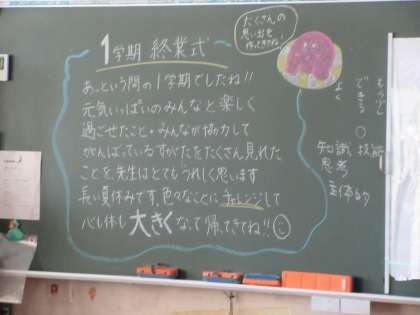 1学期 終業式
たくさんの
思い出を
作ってきてね!
あっという間の1学期でしたね!!
元気いっぱいのみんなと楽しく
過ごせたこと・みんなが協力して
がんばっているすがたをたくさん見れた
ことを先生はとてもうれしく思います
長い夏休みです。色々なことにチャレンジして
心も体も大きくなって帰ってきてね!!
もう少し
できる ○
よく
知識 技能
思考
主体的